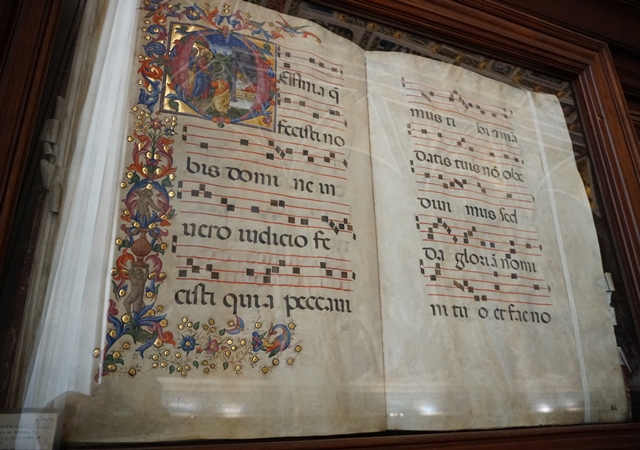 Omnia q̄
fecisti no
bis domi ne in
uero iudicio fe
cisti quia peccaui
mus ti bi ⁊ mā
datis tuis nō obe
diui mus sed
da gloriā nomi
ni tu o et fac no